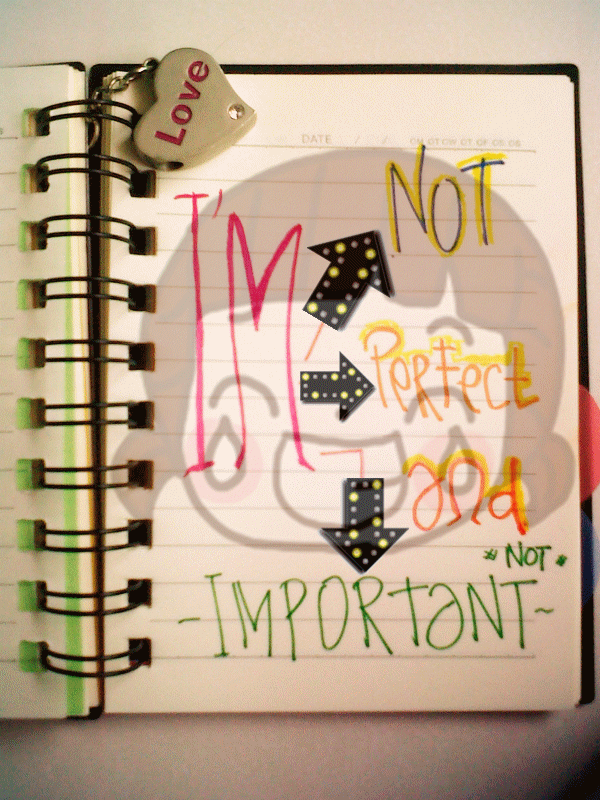 Love
DATE
NOT
I'M
Perfect
and
* NOT *
-IMPORTANT~